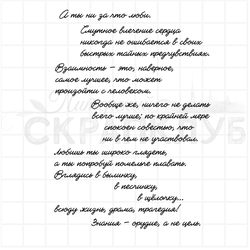 А ты ни за что люби.
Смутное влечение сердца
никогда не ошибается в своих
быстрых тайных предчувствиях.
Взаимность – это, наверное,
самое лучшее, что может
произойти с человеком.
Вообще же, ничего не делать
всего лучше; по крайней мере
спокоен совестью, что
ни в чем не участвовал.
Любишь ты широко глядеть,
а ты попробуй помельче плавать.
Вглядись в былинку,
в песчинку,
в щёлочку...
всюду жизнь, драма, трагедия!
Знания – орудие, а не цель.